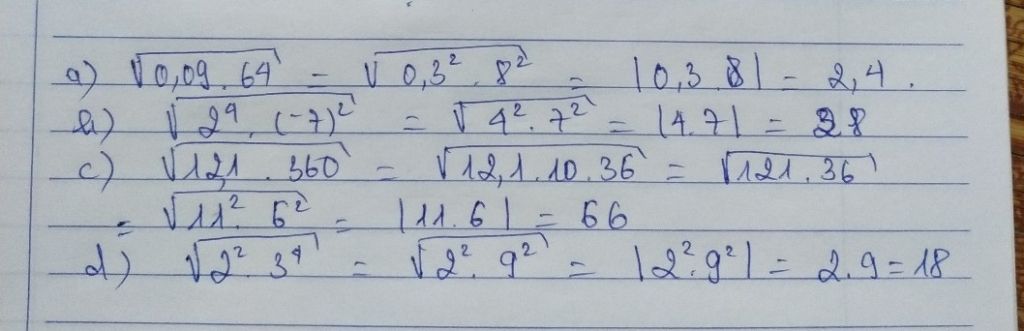 a) √0,09 . 64 = √0,3² . 8² = |0,3 . 8| = 2,4.
b) √2⁴ . (-7)² = √4² . 7² = |4.7| = 28
c) √12,1 . 360 = √12,1.10.36 = √121.36
= √11² . 6² = |11.6| = 66
d) √2² . 3⁴ = √2² . 9² = |2².9²| = 2.9 = 18